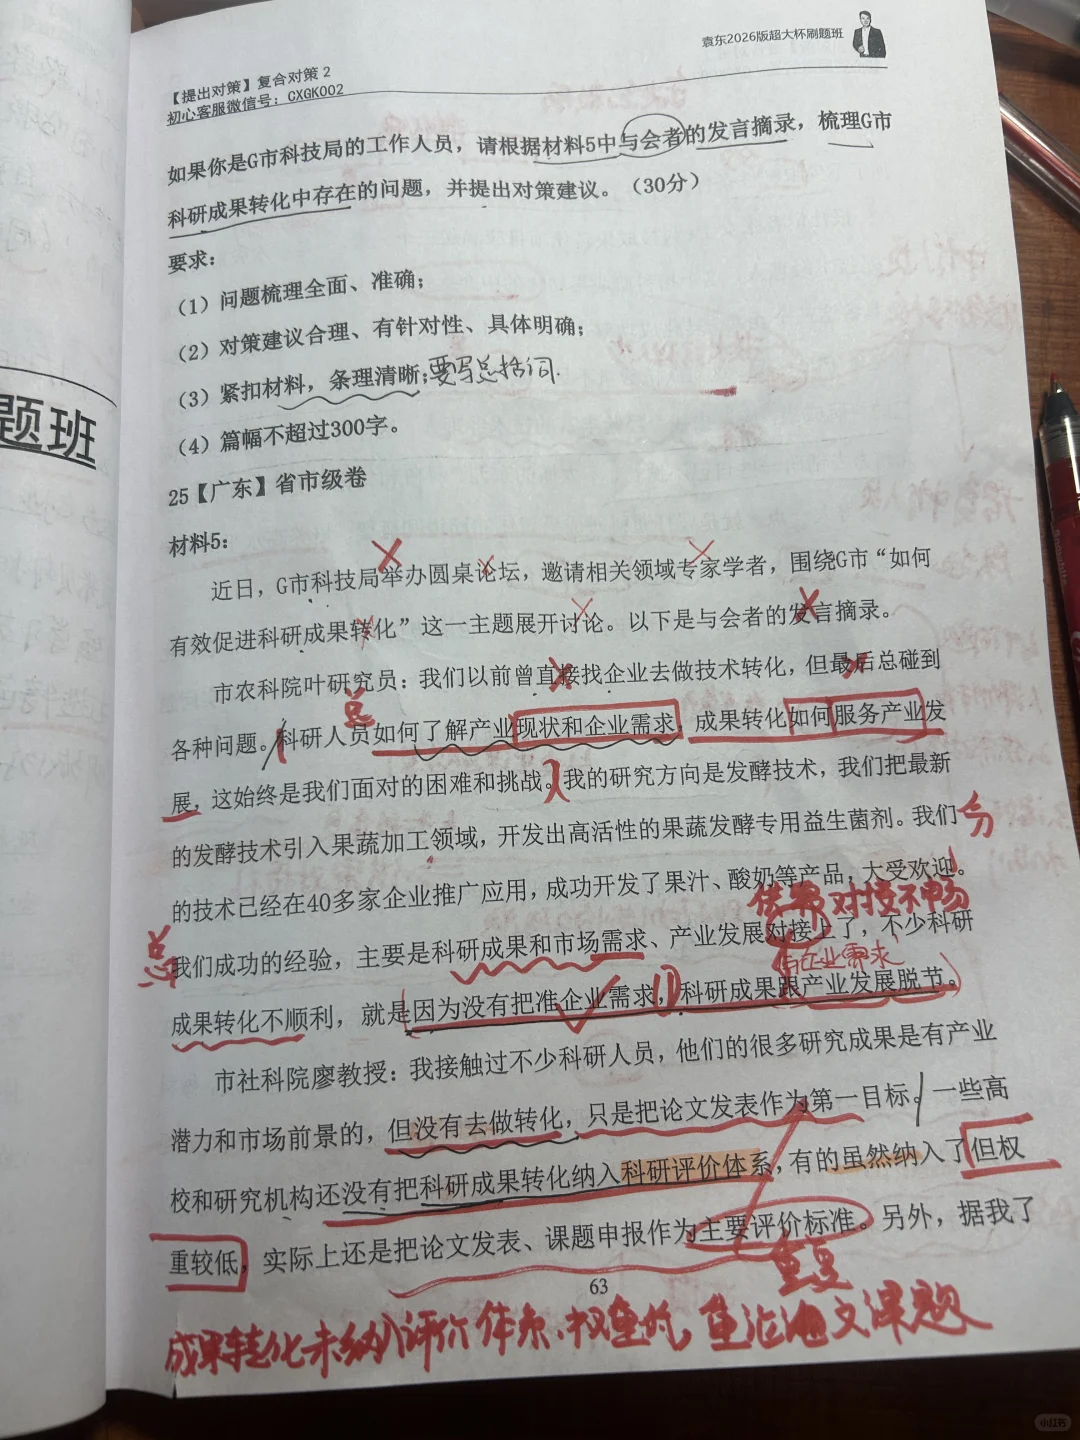 袁东2026版超大杯刷题班
【提出对策】复合对策 2
初心客服微信号：CXGK002
如果你是G市科技局的工作人员，请根据材料5中与会者的发言摘录，梳理G市
科研成果转化中存在的问题，并提出对策建议。（30分）
要求：
（1）问题梳理全面、准确；
（2）对策建议合理、有针对性、具体明确；
（3）紧扣材料，条理清晰；要写总括词.
（4）篇幅不超过300字。
题班
25【广东】省市级卷
材料5：
近日，G市科技局举办圆桌论坛，邀请相关领域专家学者，围绕G市“如何
有效促进科研成果转化”这一主题展开讨论。以下是与会者的发言摘录。
市农科院叶研究员：我们以前曾直接找企业去做技术转化，但最后总碰到
总
各种问题。科研人员如何了解产业现状和企业需求，成果转化如何服务产业发
展，这始终是我们面对的困难和挑战。我的研究方向是发酵技术，我们把最新
的发酵技术引入果蔬加工领域，开发出高活性的果蔬发酵专用益生菌剂。我们
分
的技术已经在40多家企业推广应用，成功开发了果汁、酸奶等产品，大受欢迎。
对接不畅
总
我们成功的经验，主要是科研成果和市场需求、产业发展对接上了，不少科研
与企业需求
成果转化不顺利，就是因为没有把准企业需求，科研成果跟产业发展脱节。
市社科院廖教授：我接触过不少科研人员，他们的很多研究成果是有产业
潜力和市场前景的，但没有去做转化，只是把论文发表作为第一目标。一些高
校和研究机构还没有把科研成果转化纳入科研评价体系，有的虽然纳入了但权
重较低，实际上还是把论文发表、课题申报作为主要评价标准。另外，据我了
63
成果转化未纳入评价体系、权重低 重论文课题
小红书